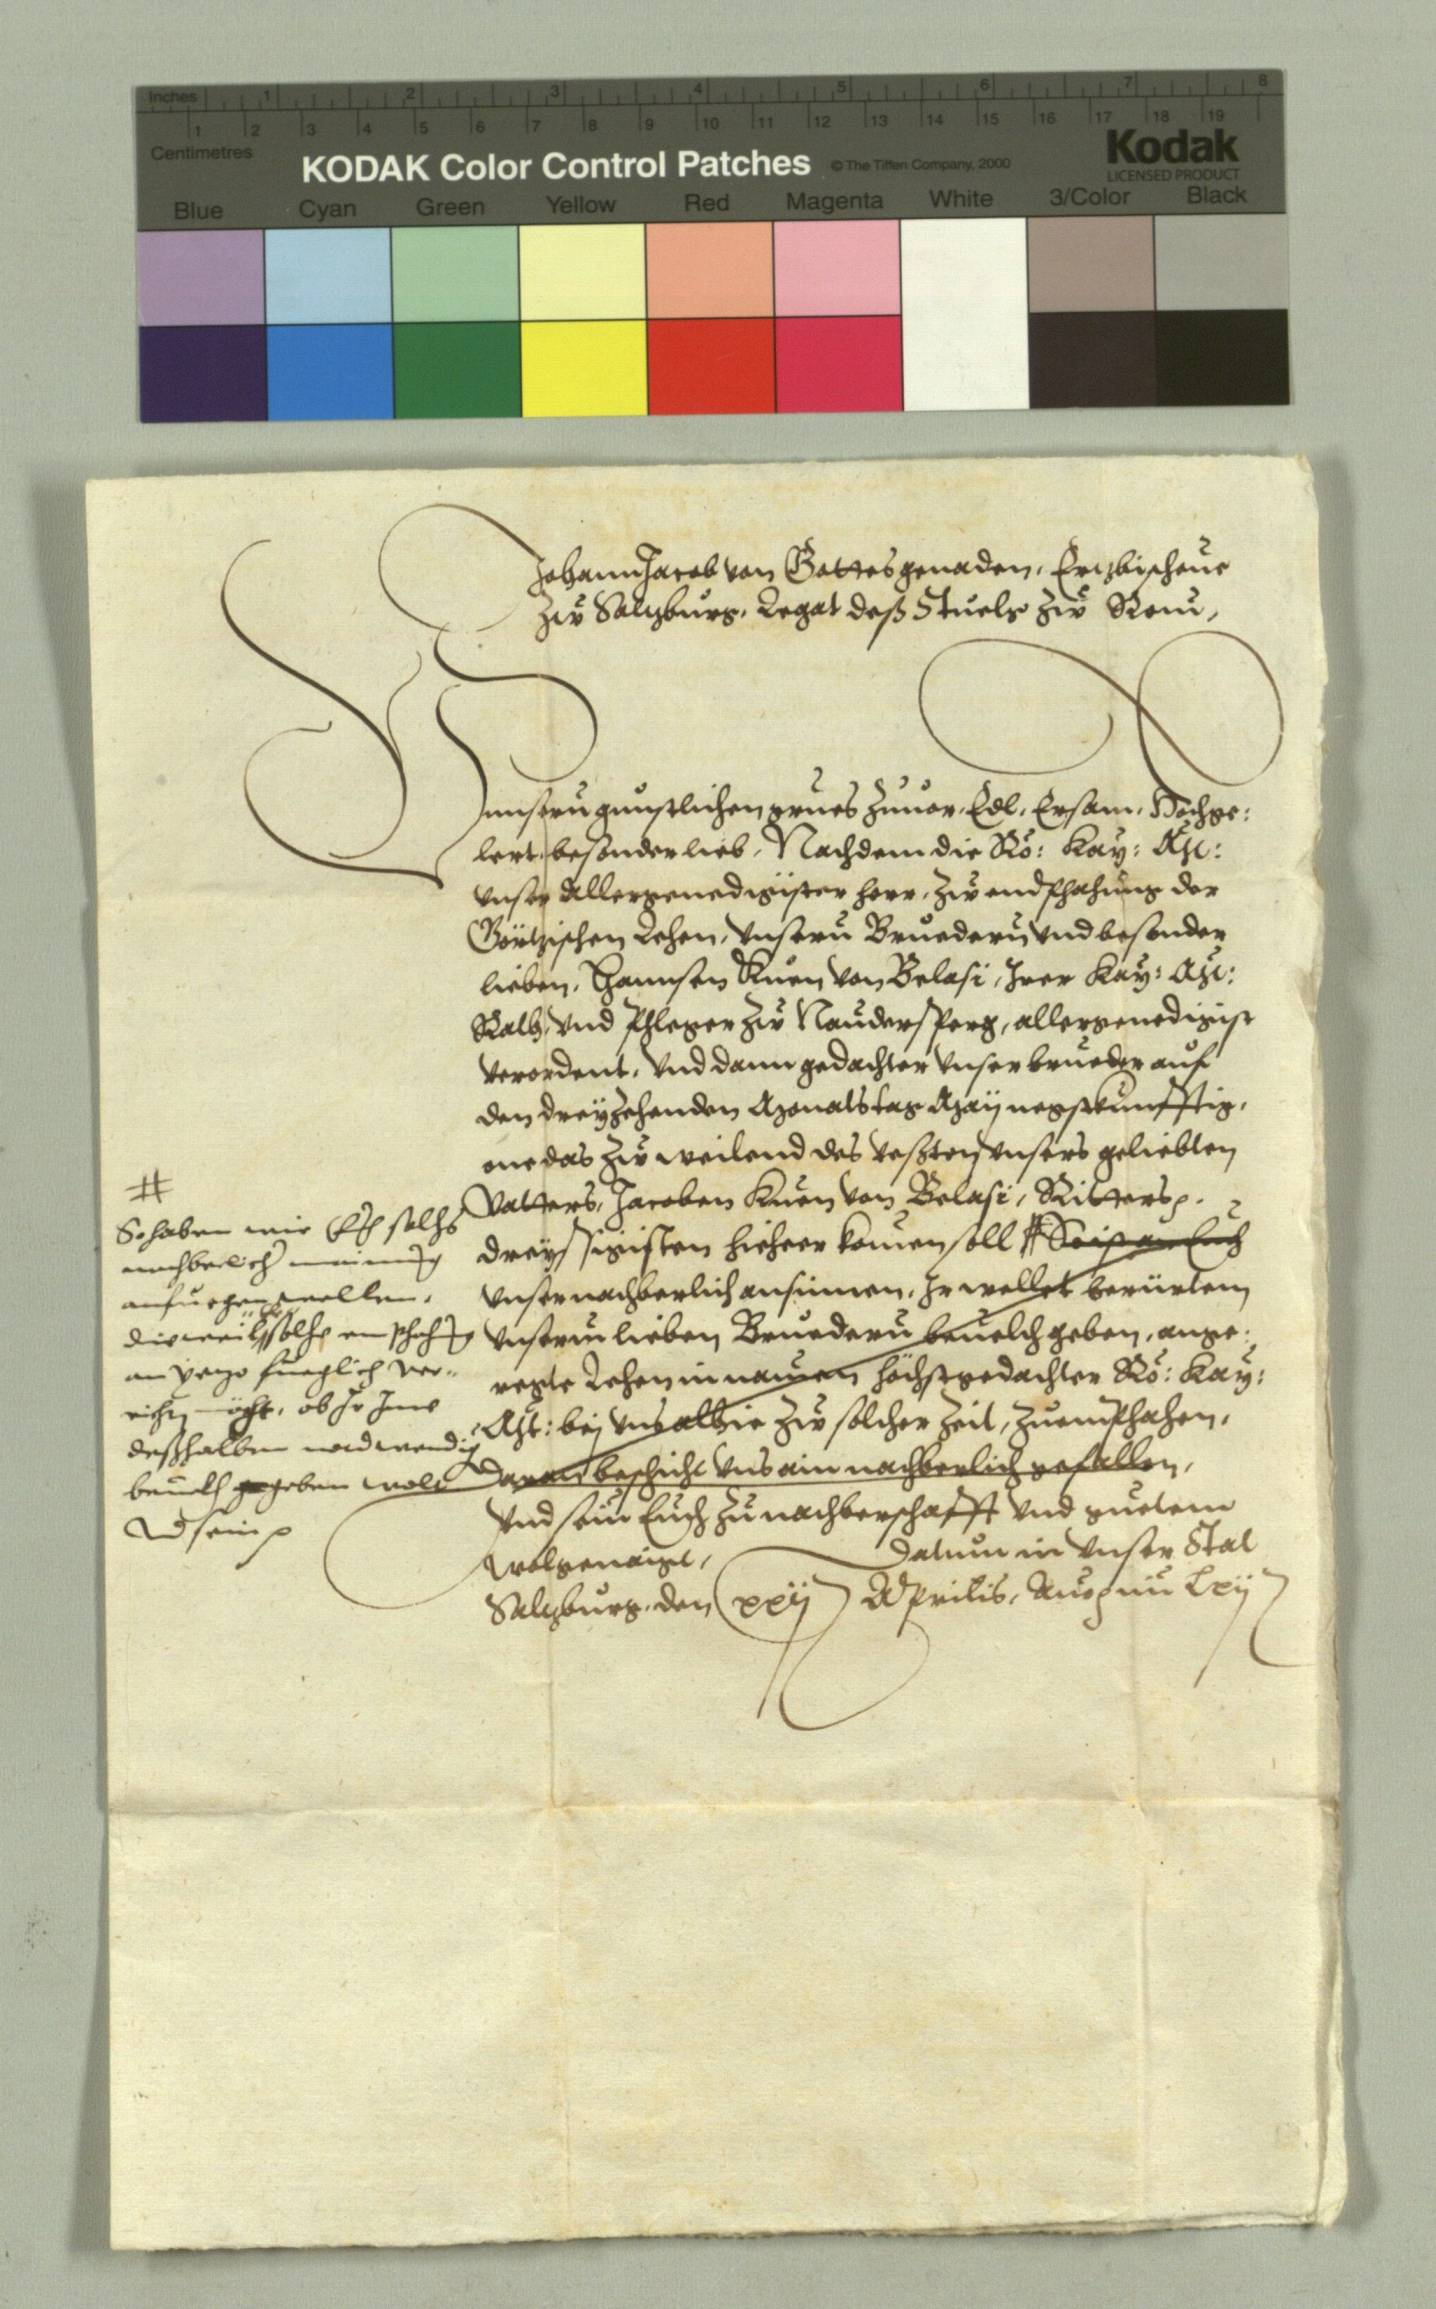 Inches 1 2 3 4 5 6 7 8
1 2 3 4 5 6 7 8 9 10 11 12 13 14 15 16 17 18 19
Centimetres
KODAK Color Control Patches © The Tiffen Company, 2000
Kodak
LICENSED PRODUCT
Blue Cyan Green Yellow Red Magenta White 3/Color Black
Johann Jacob von Gottes genaden, Ertzbischoue
zů Saltzburg, Legat deß Stuels zů Rom,
unsern gunstlichen grues zuuor, Edl, Ersam, Hochge:
lert, besonder lieb, Nachdem die Rö: Kay: Mt:
unser Allergenedigister herr, zů endtphahung der
Görtzischen Lehen, unsern Bruedern und besonder
lieben, Hannsen Kuen von Belasi, Irer Kay: Mt:
Rath, und Phleger zů Naudersperg, allergenedigist
verordent, Und dann gedachter unser brueder auf
den dreyzehenden Monatstag May negstkunfftig,
one das zů weilend des vesten unsers geliebten
Vatters, Jacoben Kuen von Belasi, Ritters
dreyssigisten hieheer komen soll # So ist an Euch
unser nachberlich ansinnen, Ir wellet berürtem
unserm lieben Bruedern beuelch geben, ange:
regte Lehen in namen höchstgedachter Rö: Kay:
Mt: bej uns alhie zů solcher Zeit, zuemphahen,
Daran beschicht uns ain nachberlich gefallen,
Und sein Euch zu nachberschafft und guetem
wolgenaigt, Datum in unser Stat
Saltzburg, den xxij Aprilis, Anno im Lxij
#
So haben wir Euch solhs
nachberlicher mainung
anfuegen wellen,
dieweil solhe emphahung
am yezo fueglich ver-
richt möcht, ob Ir Ime
deßhalben notwendig
beuelh geben wolt
Und sein